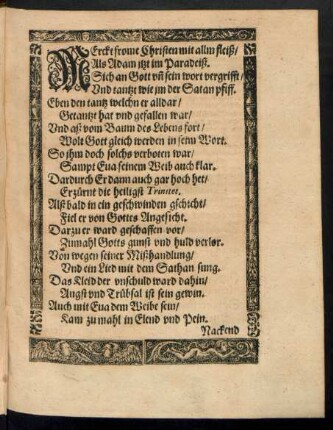 MErckt frome Christen mit allm fleiß/
Als Adam jtzt im Paradeiß.
Sich an Gott vñ sein wort vergrifft/
Vnd tantzt wie jm der Satan pfiff.
Eben den tantz welchn er alldar/
Getantzt hat vnd gefallen war/
Vnd aß vom Baum des Lebens fort/
Wolt Gott gleich werden in seim Wort.
So jhm doch solchs verboten war/
Sampt Eua seinem Weib auch klar.
Dardurch Er dann auch gar hoch het/
Erzürnt die heiligst Trinitet.
Alß bald in ein geschwinden gschicht/
Fiel er von Gottes Angesicht.
Darzu er ward geschaffen vor/
Zumahl Gotts gunst vnd huld verlor.
Von wegen seiner Mißhandlung/
Vnd ein Lied mit dem Sathan sung.
Das Kleid der vnschuld ward dahin/
Angst vnd Trübsal ist sein gewin.
Auch mit Eua dem Weibe sein/
Kam zu mahl in Elend vnd Pein.
Nackend